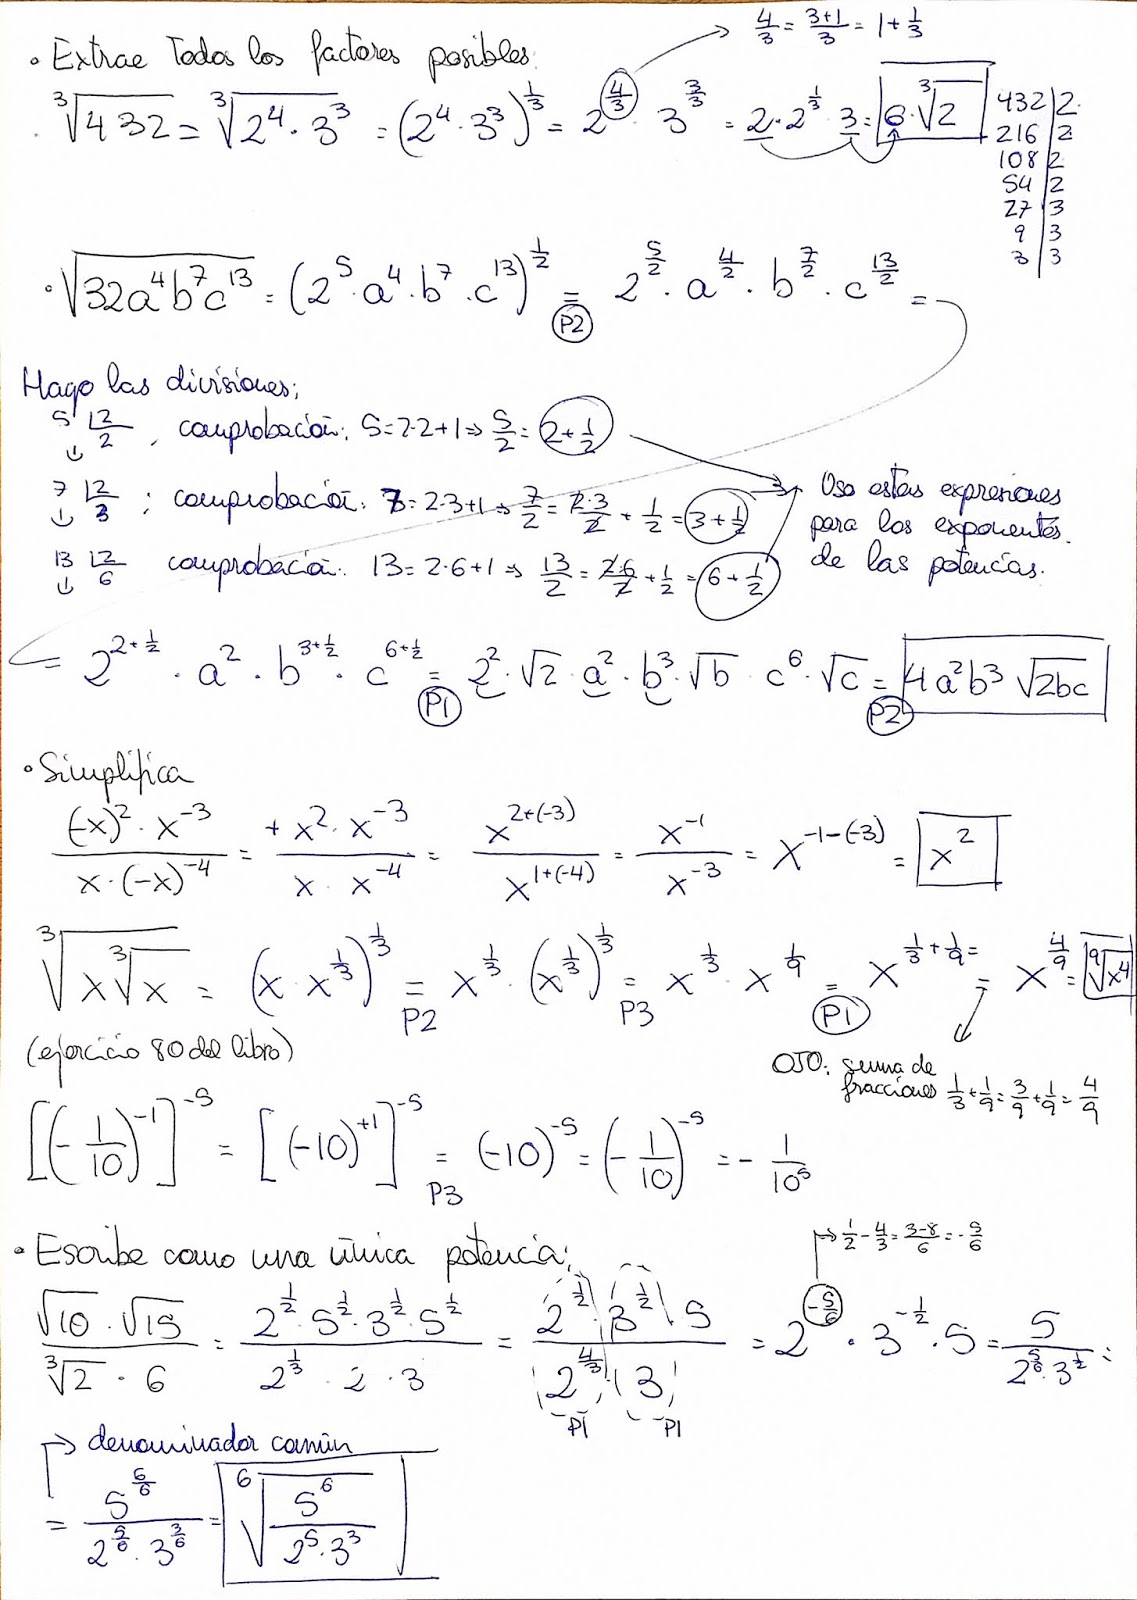 4/3 = (3+1)/3 = 1 + 1/3
• Extrae todos los factores posibles:
∛432 = ∛(2⁴·3³) = (2⁴·3³)^(1/3) = 2^(4/3) · 3^(3/3) = 2·2^(1/3)·3 = 6·∛2
432 | 2
216 | 2
108 | 2
54 | 2
27 | 3
9 | 3
3 | 3
• √(32a⁴b⁷c¹³) = (2⁵·a⁴·b⁷·c¹³)^(1/2) = 2^(5/2) · a^(4/2) · b^(7/2) · c^(13/2) =
P2
Hago las divisiones;
5 |2 2 , comprobación: 5=2·2+1 ⇒ 5/2 = 2+1/2
7 |2 3 ; comprobación: 7=2·3+1 ⇒ 7/2 = 2·3/2 + 1/2 = 3+1/2
13 |2 6 comprobación: 13=2·6+1 ⇒ 13/2 = 2·6/2 + 1/2 = 6+1/2
Uso estas expresiones
para los exponentes
de las potencias.
= 2^(2+1/2) · a² · b^(3+1/2) · c^(6+1/2) = 2²·√2·a²·b³·√b·c⁶·√c = 4a²b³√(2bc)
P1 P2
• Simplifica
((-x)²·x⁻³)/(x·(-x)⁻⁴) = (+x²·x⁻³)/(x·x⁻⁴) = x^(2+(-3))/x^(1+(-4)) = x⁻¹/x⁻³ = x^(-1-(-3)) = x²
∛(x∛x) = (x·x^(1/3))^(1/3) = x^(1/3)·(x^(1/3))^(1/3) = x^(1/3)·x^(1/9) = x^(1/3+1/9) = = x^(4/9) = ⁹√(x⁴)
P2 P3 P1
(ejercicio 80 del libro)
OJO: suma de
fracciones 1/3+1/9=3/9+1/9=4/9
[(-1/10)⁻¹]⁻⁵ = [(-10)⁺¹]⁻⁵ = (-10)⁻⁵ = (-1/10)⁻⁵ = - 1/10⁵
P3
1/2 - 4/3 = (3-8)/6 = -5/6
• Escribe como una única potencia;
(√10·√15)/(∛2·6) = (2^(1/2)·5^(1/2)·3^(1/2)·5^(1/2))/(2^(1/3)·2·3) = (2^(1/2)·3^(1/2)·5)/(2^(4/3)·3) = 2^(-5/6)·3^(-1/2)·5 = 5/(2^(5/6)·3^(1/2)) =
P1 P1
denominador común
= 5^(6/6)/(2^(5/6)·3^(3/6)) = ⁶√(5⁶/(2⁵·3³))